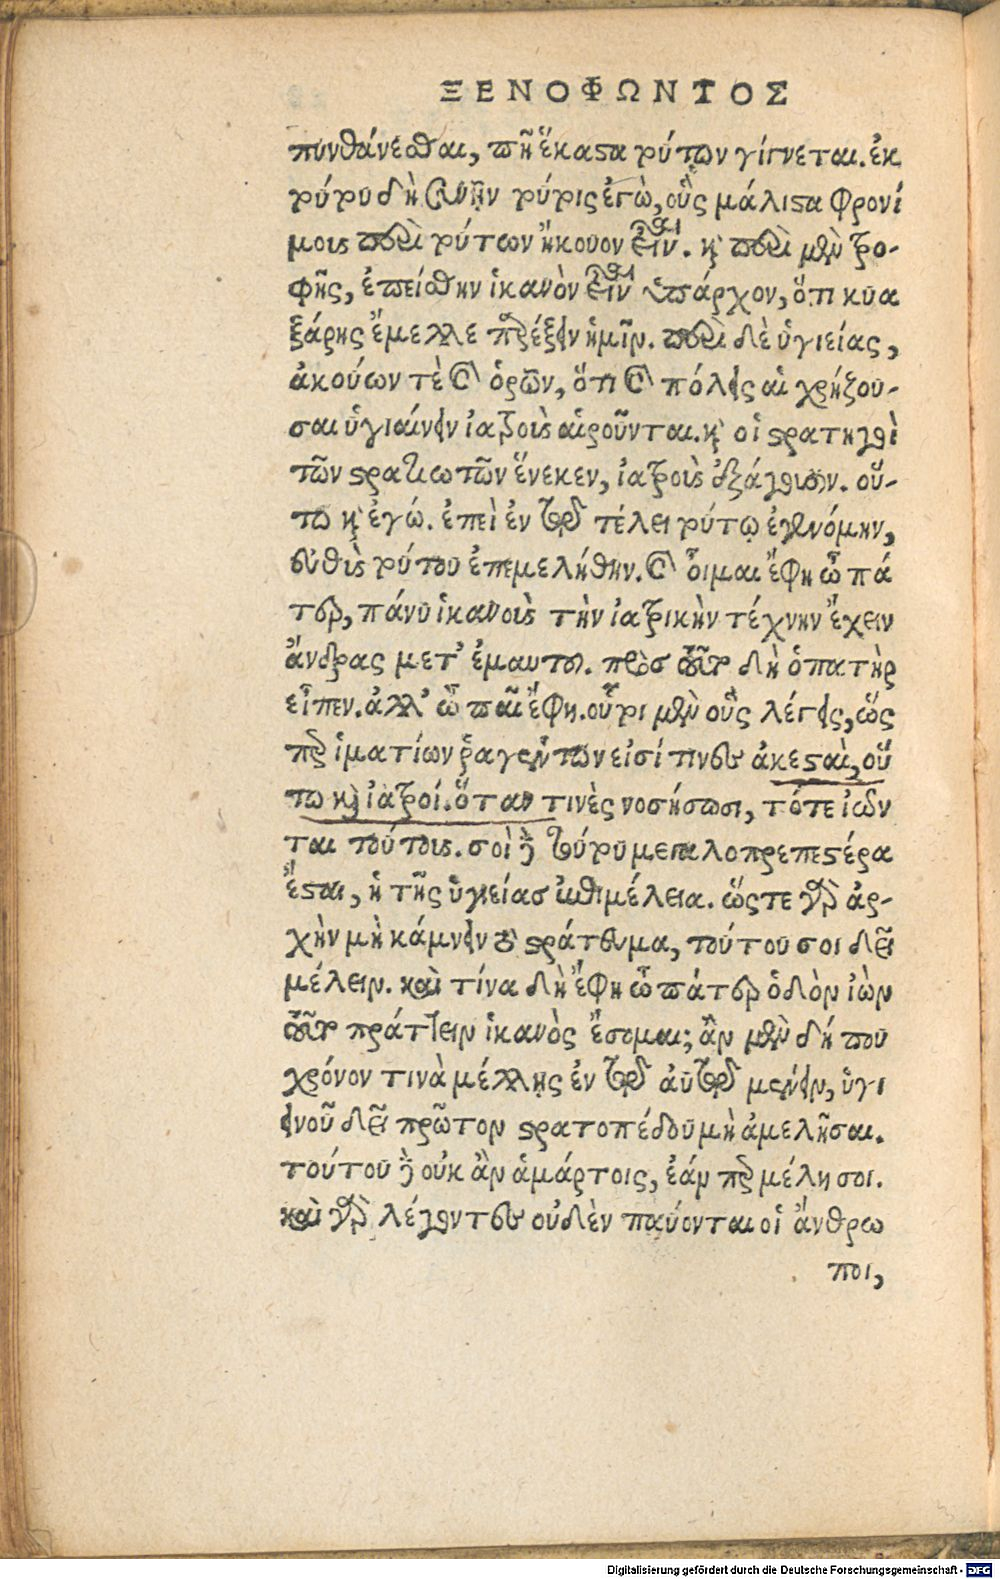 ΞΕΝΟΦΩΝΤΟΣ
πυνθάνεσθαι, πῆ ἕκαστα τούτων γίγνεται. ἐκ
τούτου δὴ συνῆν τούτοις ἐγὼ, οὓς μάλιστα φρονί
μους περὶ τούτων ἤκουον εἶναι. καὶ περὶ μὲν τρο-
φῆς, ἐπείσθην ἱκανὸν εἶναι ὑπάρχον, ὅτι κυα
ξάρης ἔμελλε παρέξειν ἡμῖν. περὶ δὲ ὑγιείας,
ἀκούων τὲ καὶ ὁρῶν, ὅτι καὶ πόλεις αἱ χρήζου-
σαι ὑγιαίνειν ἰατροὺς αἱροῦνται. καὶ οἱ στρατηγοὶ
τῶν στρατιωτῶν ἕνεκεν, ἰατροὺς ἐξάγουσιν. οὕ-
τω καὶ ἐγώ. ἐπεὶ ἐν τῷ τέλει τούτῳ ἐγενόμην,
εὐθὺς τούτου ἐπεμελήθην. καὶ οἶμαι ἔφη ὦ πά
τερ, πάνυ ἱκανοὺς τὴν ἰατρικὴν τέχνην ἔχειν
ἄνδρας μετ' ἐμαυτοῦ. πρὸσ ταῦτα δὴ ὁ πατὴρ
εἶπεν. ἀλλ' ὦ παῖ ἔφη. οὗτοι μὲν οὓς λέγεις, ὥς
περ ἱματίων ῥαγέντων εἰσί τινες ἀκεσταὶ, οὕ
τω καὶ ἰατροί. ὅταν τινὲς νοσήσωσι, τότε ἰῶν
ται τούτους. σοὶ δὲ τούτου μεγαλοπρεπεστέρα
ἔσται, ἡ τῆς ὑγιείασ ἐπιμέλεια. ὥςτε γὰρ ἀρ-
χὴν μὴ κάμνειν τὸ στράτευμα, τούτου σοι δεῖ
μέλειν. καὶ τίνα δὴ ἔφη ὦ πάτερ ὁδὸν ἰὼν
ταῦτα πράττειν ἱκανὸς ἔσομαι; ἂν μὲν δή που
χρόνον τινὰ μέλλῃς ἐν τῷ αὐτῷ μένειν, ὑγι
εινοῦ δεῖ πρῶτον στρατοπέδου μὴ ἀμελῆσαι.
τούτου δὲ οὐκ ἂν ἁμάρτοις, ἐάν περ μέλῃ σοι.
καὶ γὰρ λέγοντες οὐδὲν παύονται οἱ ἄνθρω
ποι,
Digitalisierung gefördert durch die Deutsche Forschungsgemeinschaft - DFG